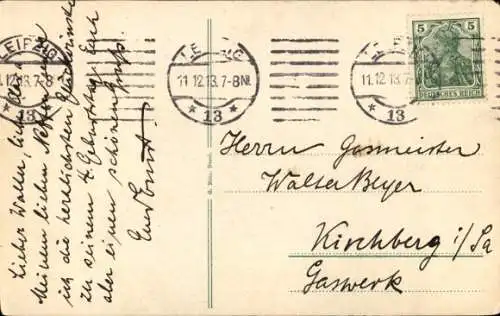 Lieber Walter, liebe
Meinem lieben Neffen
ich die herzlichsten Glückwünsche
zu seinem 4. Geburtstage. Euch
aber einen schönen Gruß.
Euer Ernst.
LEIPZIG
11.12.13.7-8
* 13 *
LEIPZIG
11.12.13.7-8N.
* 13 *
11.12.13.7-8
* 13
5 5
DEUTSCHES REICH
Herrn Gasmeister
Walter Beyer
Kirchberg i/Sa
Gaswerk